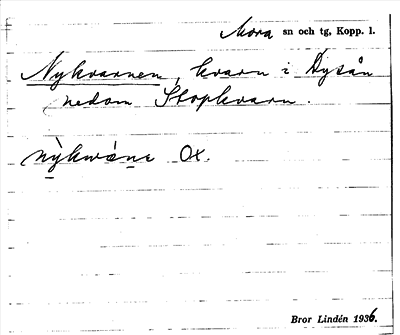 Mora sn och tg, Kopp. l.
Nykvarnen, kvarn i Dysån
nedom Stopkvarn.
Ox.
Bror Lindén 1936.